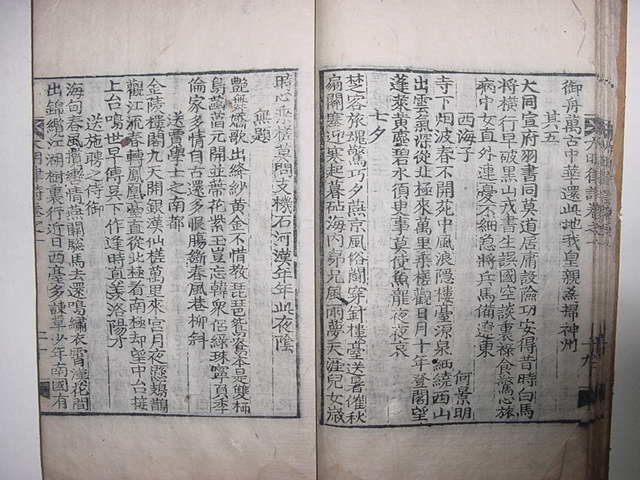 御舟萬古中華還此地我皇親為掃神州
其五
大同宣府羽書同莫道居庸設險功安得昔時白馬
將橫行早破黑山戎書生誤國空談裏祿食驚心旅
病中女直外連憂不細急將兵馬備遼東
西海子
何景明
寺下烟波春不開苑中風浪隱樓臺源泉細繞西山
出雲氣深從北極來萬里乘槎觀日月十年登閣望
蓬萊黃臺碧水須臾事莫使魚龍夜夜哀
七夕
芝客旅魂驚巧夕燕京風俗鬧穿針樓臺送暑催秋
扇關塞迎寒起暮砧海內弟兄風雨夢天涯兒女歲
時心乘槎莫問支機石河漢年年此夜陰
無題
艷舞嬌歌出絳紗黃金不惜教琵琶鴛鴦不旦雙柿
島荳蔻元開並蒂花紫玉豈忘韓眾侶綠珠寧負季
倫家多情自古還多恨腸斷春風巷柳斜
送賈學士之南都
金陵樓閣九天開銀漢仙槎萬里來宮月夜懸鳷鵲
觀江流春轉鳳凰臺直從北極看南極却望中台接
上台鳴世早傳吳下作逢時直羨洛陽才
送施聘之侍御
海甸春風滿
情無關驄馬去還鳴繡衣雪
花間
出錦纜江湖樹裏行近日西臺多諫草少年南國有
大明律詩卷之一